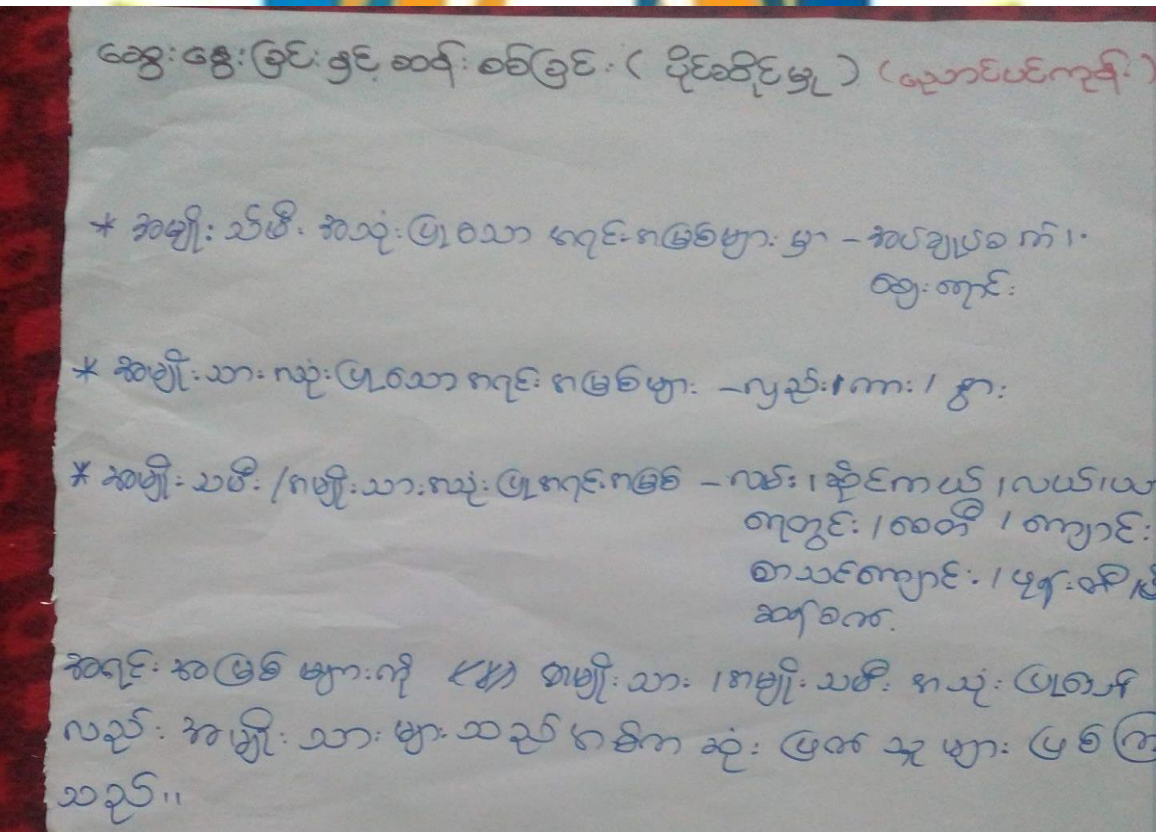 ဆွေးနွေးခြင်းနှင့် ဆန်းစစ်ခြင်း ( ပိုင်ဆိုင်မှု ) (ညောင်ပင်ကုန်း)
* အမျိုးသမီး အသုံးပြုသော အရင်းအမြစ်များမှာ – အပ်ချုပ်စက်၊
ဈေးရောင်း
* အမျိုးသားသုံးပြုသော အရင်းအမြစ်များ – လှည်း၊ ကား / နွား
* အမျိုးသမီး / အမျိုးသားအသုံးပြုအရင်းအမြစ် – လမ်း၊ ဆိုင်ကယ် ၊လယ်၊ယာ
ရေတွင်း / စေတီ / ကျောင်း
စာသင်ကျောင်း / ဖုန်း
ဆန်စက်
အရင်းအမြစ်များကို အမျိုးသား /အမျိုးသမီး အသုံးပြုသော်
လည်း အမျိုးသားများသည် အဓိက ဆုံးဖြတ်သူများ ဖြစ်ကြ
သည်။